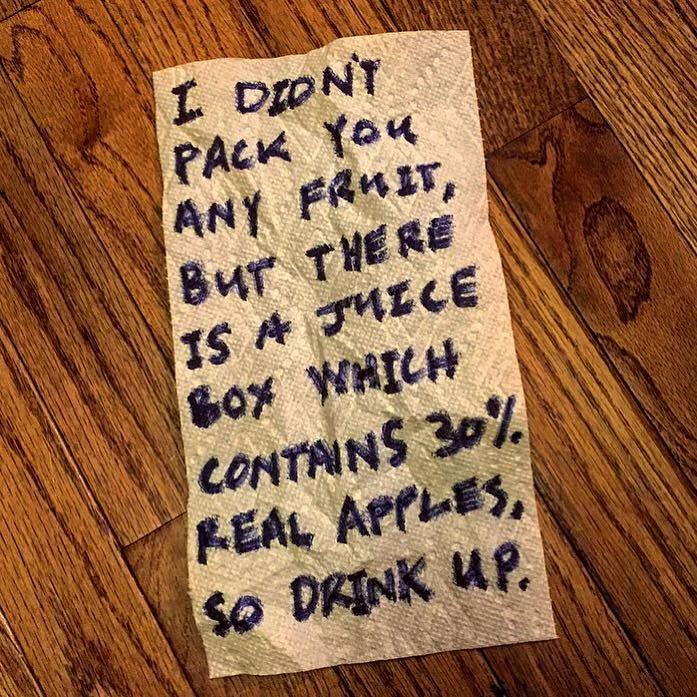 I DIDN'T
PACK YOU
ANY FRUIT,
BUT THERE
IS A JUICE
BOX WHICH
CONTAINS 30%
REAL APPLES,
SO DRINK UP.